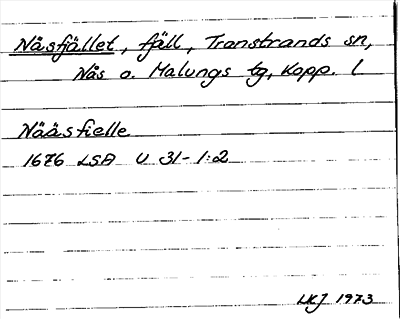 Nåsfjället, fjäll, Transtrands sn,
Nås o. Malungs tg, Kopp. l
Nääsfielle
1676 LSA U 31-1:2
LKJ 1973